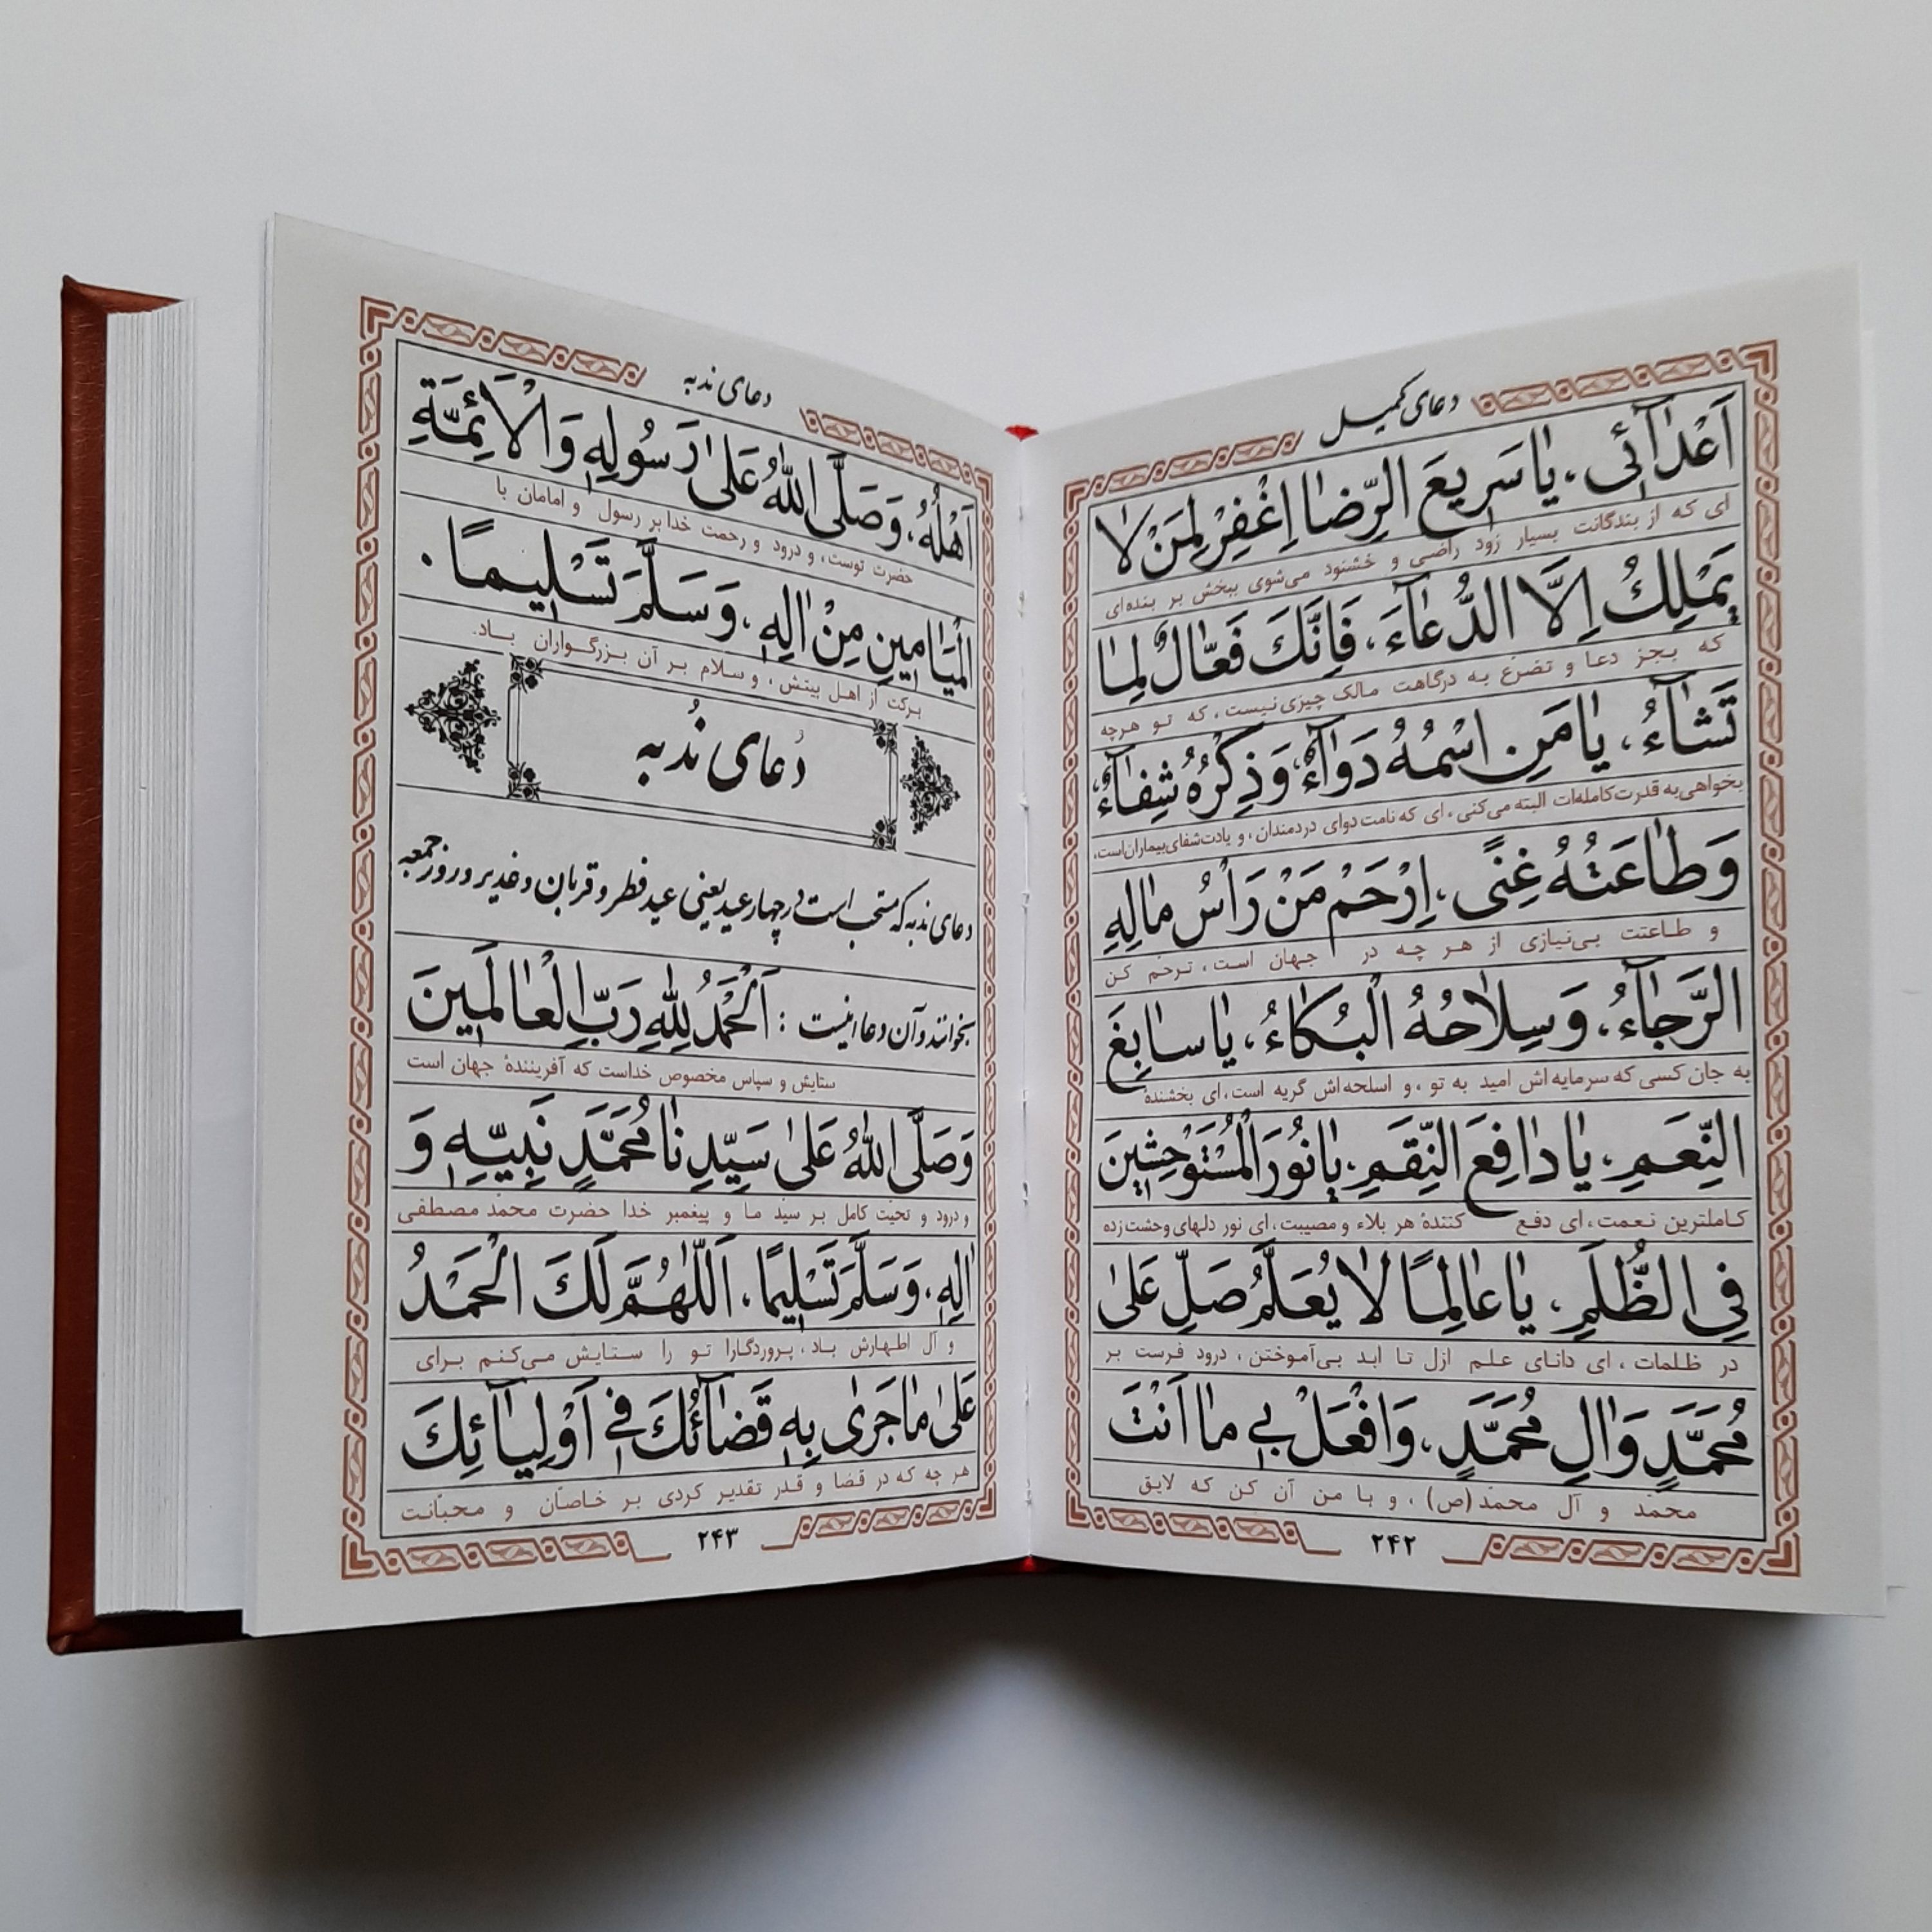 دعای کمیل
اَعْدٰآئی، یٰا سَریعَ الرِّضٰا اِغْفِرْ لِمَنْ لٰا
ای که از بندگانت بسیار زود راضی و خشنود می‌شوی ببخش بر بنده‌ای
یَمْلِكُ اِلَّا الدُّعٰآءَ، فَاِنَّكَ فَعّٰالٌ لِمٰا
که بجز دعا و تضرّع به درگاهت مالک چیزی نیست، که تو هرچه
تَشٰآءُ، یٰا مَنِ اسْمُهُ دَوٰآءٌ، وَ ذِکْرُهُ شِفٰآءٌ،
بخواهی به قدرت کامله‌ات البته می‌کنی، ای که نامت دوای دردمندان، و یادت شفای بیماران است،
وَ طٰاعَتُهُ غِنًی، اِرْحَمْ مَنْ رَاْسُ مٰالِهِ
و طاعتت بی‌نیازی از هر چه در جهان است، ترحّم کن
الرَّجٰآءُ، وَ سِلٰاحُهُ الْبُکٰاءُ، یٰا سٰابِغَ
به جان کسی که سرمایه‌اش امید به تو، و اسلحه‌اش گریه است، ای بخشندهٔ
النِّعَمِ، یٰا دٰافِعَ النِّقَمِ، یٰا نُورَ الْمُسْتَوْحِشینَ
کاملترین نعمت، ای دفع کنندهٔ هر بلاء و مصیبت، ای نور دلهای وحشت زده
فِی الظُّلَمِ، یٰا عٰالِمًا لٰا یُعَلَّمُ صَلِّ عَلیٰ
در ظلمات، ای دانای علم ازل تا ابد بی‌آموختن، درود فرست بر
مُحَمَّدٍ وَ اٰلِ مُحَمَّدٍ، وَافْعَلْ بی مٰا اَنْتَ
محمّد و آل محمّد (ص)، و با من آن کن که لایق
۲۴۲
دعای ندبه
اَهْلُهُ، وَ صَلَّی اللّٰهُ عَلیٰ رَسُولِهِ وَ الْاَئِمَّةِ
حضرت توست، و درود و رحمت خدا بر رسول و امامان با
الْمَیٰامینَ مِنْ اٰلِهِ، وَ سَلَّمَ تَسْلیمًا.
برکت از اهل بیتش، و سلام بر آن بزرگواران باد.
دُعای نُدبه
دعای ندبه که مستحب است در چهار عید یعنی عید فطر و قربان و غدیر و روز جمعه
بخوانند و آن دعا اینست : اَلْحَمْدُ لِلّٰهِ رَبِّ الْعٰالَمینَ
ستایش و سپاس مخصوص خداست که آفرینندهٔ جهان است
وَ صَلَّی اللّٰهُ عَلیٰ سَیِّدِنٰا مُحَمَّدٍ نَبِیِّهِ وَ
و درود و تحیّت کامل بر سیّد ما و پیغمبر خدا حضرت محمّد مصطفی
اٰلِهِ، وَ سَلَّمَ تَسْلیمًا، اَللّٰهُمَّ لَكَ الْحَمْدُ
و آل اطهارش باد، پروردگارا تو را ستایش می‌کنم برای
عَلیٰ مٰا جَریٰ بِهِ قَضٰآئُكَ فی اَوْلِیٰآئِكَ
هر چه که در قضا و قدر تقدیر کردی بر خاصّان و محبّانت
۲۴۳